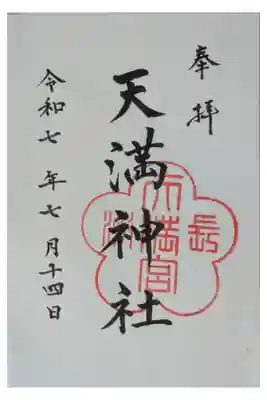 奉拝
天満神社
長洲
天満宮
令和七年七月十四日